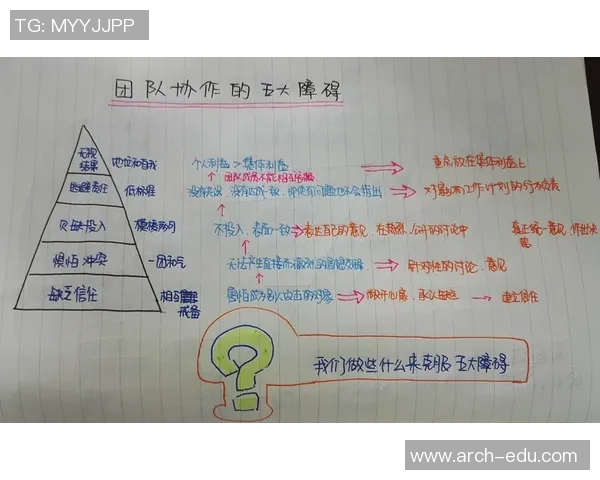 TG: MYYJJPP
团队协作的五大障碍
无视结果 地位和自我 个人利益 > 集体利益 重点放在集体利益上
逃避责任 低标准 没有达成一致,即使有问题也不会指出 对最 工作计划的 负责
欠缺投入 模棱两可 不投入,表面一致 表达自己的意见,在 公开的讨论中 真正统一意见,作出决策
惧怕冲突 一团和气 无法产生直接而激烈的思想交锋 针对性的讨论、意见
缺乏信任 相互戒备 害怕成为别人攻击的对象 敞开心扉,承认 建立信任
我们做些什么来克服五大障碍
www.arch-edu.com